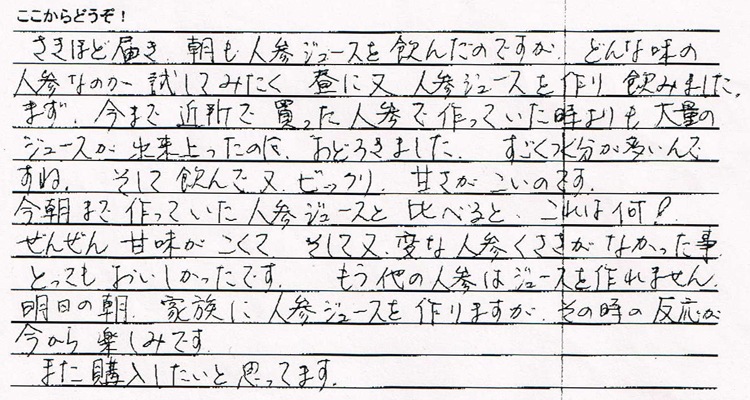 ここからどうぞ！
さきほど届き 朝も人参ジュースを飲んだのですが、どんな味の
人参なのか 試してみたく 昼に又 人参ジュースを作り 飲みました。
まず、今まで 近所で 買った人参で作っていた時よりも 大量の
ジュースが 出来上ったのに、おどろきました。 すごく分が多いんで
すね。 そして飲んで、又、ビックリ。 甘さが こいのです。
今朝まで 作っていた 人参ジュースと 比べると、これは何！
ぜんぜん 甘味が こくて そして又、変な人参くささがなかった事
とっても おいしかったです。 もう他の人参はジュースを作れません。
明日の朝、家族に 人参ジュースを 作りますが、その時の反応が
今から 楽しみです。
また購入したいと思ってます。